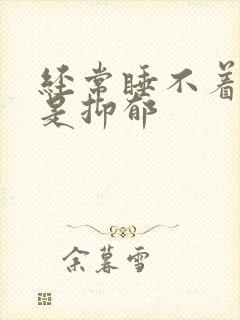 经常睡不着
是抑郁
余暮雪